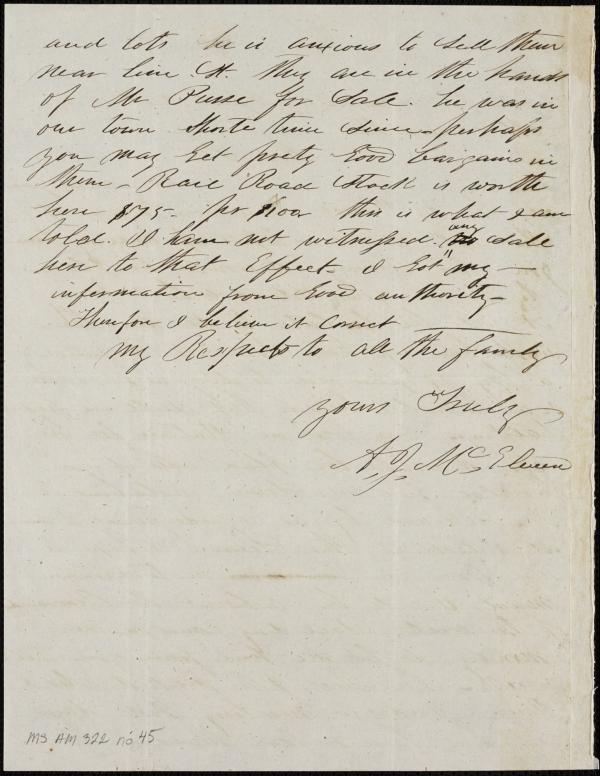 and lots he is anxious to sell them
near line St. they are in the hands
of Mr Pusse for Sale. he was in
our town Shorte time Since perhaps
you may Get prety Good bargains in
them - Rail Road Stock is worth
here $75- pr $100 this is what I am
told. I have not witnessed any Sale
here to that Effect - I Got my
information from Good authority -
Therefore I believe it Correct
my Respects to all the family
yours Truly
A. J. McElveen
MS AM 322 no 45